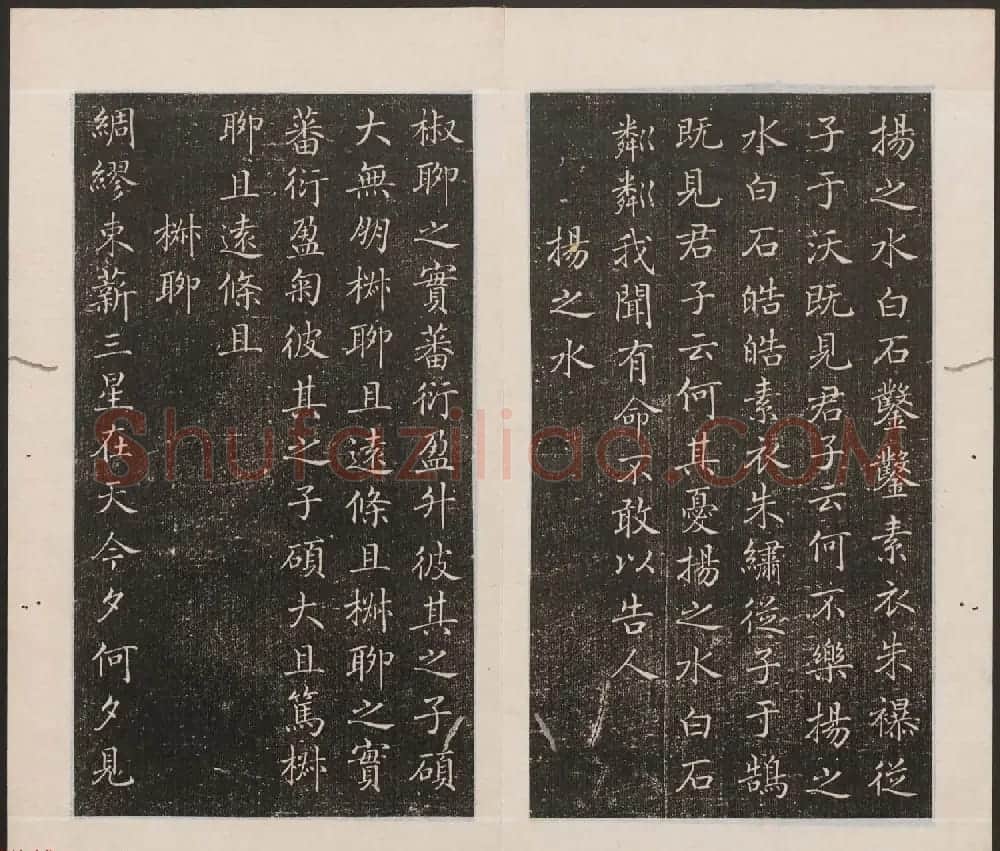 揚之水白石鑿鑿素衣朱襮從
子于沃既見君子云何不樂揚之
水白石皓皓素衣朱繡從子于鵠
既見君子云何其憂揚之水白石
粼粼我聞有命不敢以告人
揚之水
椒聊之實蕃衍盈升彼其之子碩
大無朋椒聊且遠條且椒聊之實
蕃衍盈匊彼其之子碩大且篤椒
聊且遠條且
椒聊
綢繆束薪三星在天今夕何夕見
Shufaziliao.COM